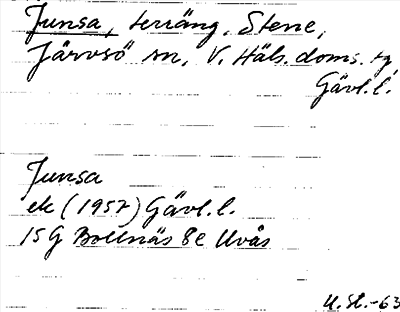 Junsa, terräng, Stene,
Järvsö sn, V. Häls. doms. tg
Gävl. l.
Junsa
ek (1957) Gävl. l.
15G Bollnäs 8e Uvås
U. St. -63